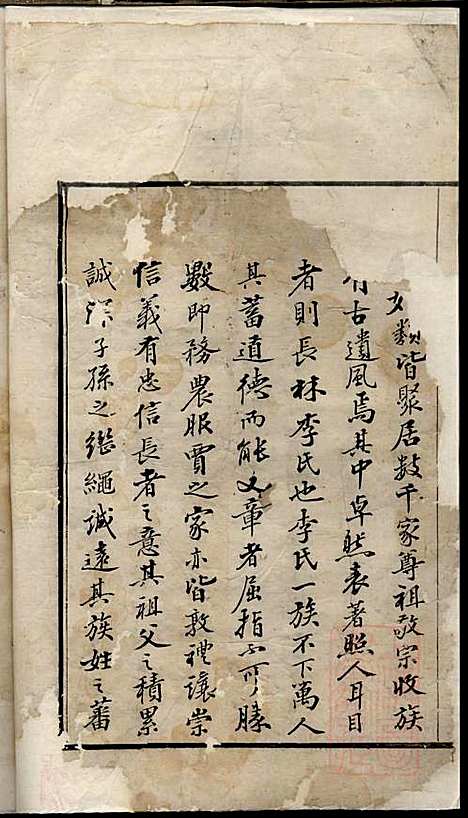 類皆聚居数千家尊祖敬宗收族
有古遺風焉其中卓然表著照人耳目
者則長林李氏也李氏一族不下萬人
其蓄道德而能文章者屈指不可勝
數即務農服賈之家亦皆敦禮讓崇
信義有忠信長者之意其祖父之積累
誠深子孫之繼繩誠遠其族姓之蕃